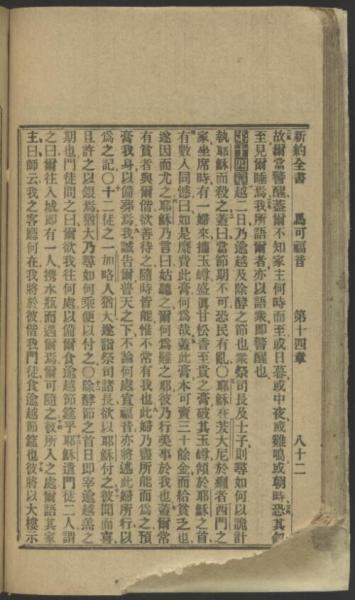 新約全書 馬可福音 第十四章 八十二
故爾當警醒蓋爾不知家主何時而至或日暮或中夜或雞鳴或朝時恐其忽
至見爾睡焉我所語爾者亦以語衆即警醒也
第十四章越二日乃逾越及除酵之節也衆祭司長及士子則尋如何以詭計
執耶穌而殺之蓋曰當節期不可恐民有亂〇耶穌在茇大尼於癩者西門之
家坐席時有一婦來攜玉罇盛眞甘松香至貴之膏破其玉罇傾於耶穌之首
有數人同憾曰如是糜費此膏何爲哉蓋此膏本可賣三十餘金而給貧乏也
遂因而尤之耶穌乃言曰姑聽之爾何爲難之耶彼乃行美事於我也蓋爾常
有貧者與爾偕欲善待之隨時皆能惟不常有我也此婦乃盡所能而爲之預
膏我身以備葬焉我誠告爾普天之下不論何處宣福音亦將述此婦所行以
爲之記〇十二徒之一加略人猶大遂詣祭司諸長欲以耶穌付之彼聞而喜
且許之以銀焉猶大乃尋如何乘便以付之〇除酵節之首日即宰逾越羔之
期也門徒問之曰爾欲我往何處以備爾食逾越節筵乎耶穌遣門徒二人謂
之曰爾往入城即有一人攜水瓶而遇爾焉爾可隨之彼所入之處爾語其家
主曰師云我之客廳何在我將於彼偕我門徒食逾越節筵也彼將以大樓示